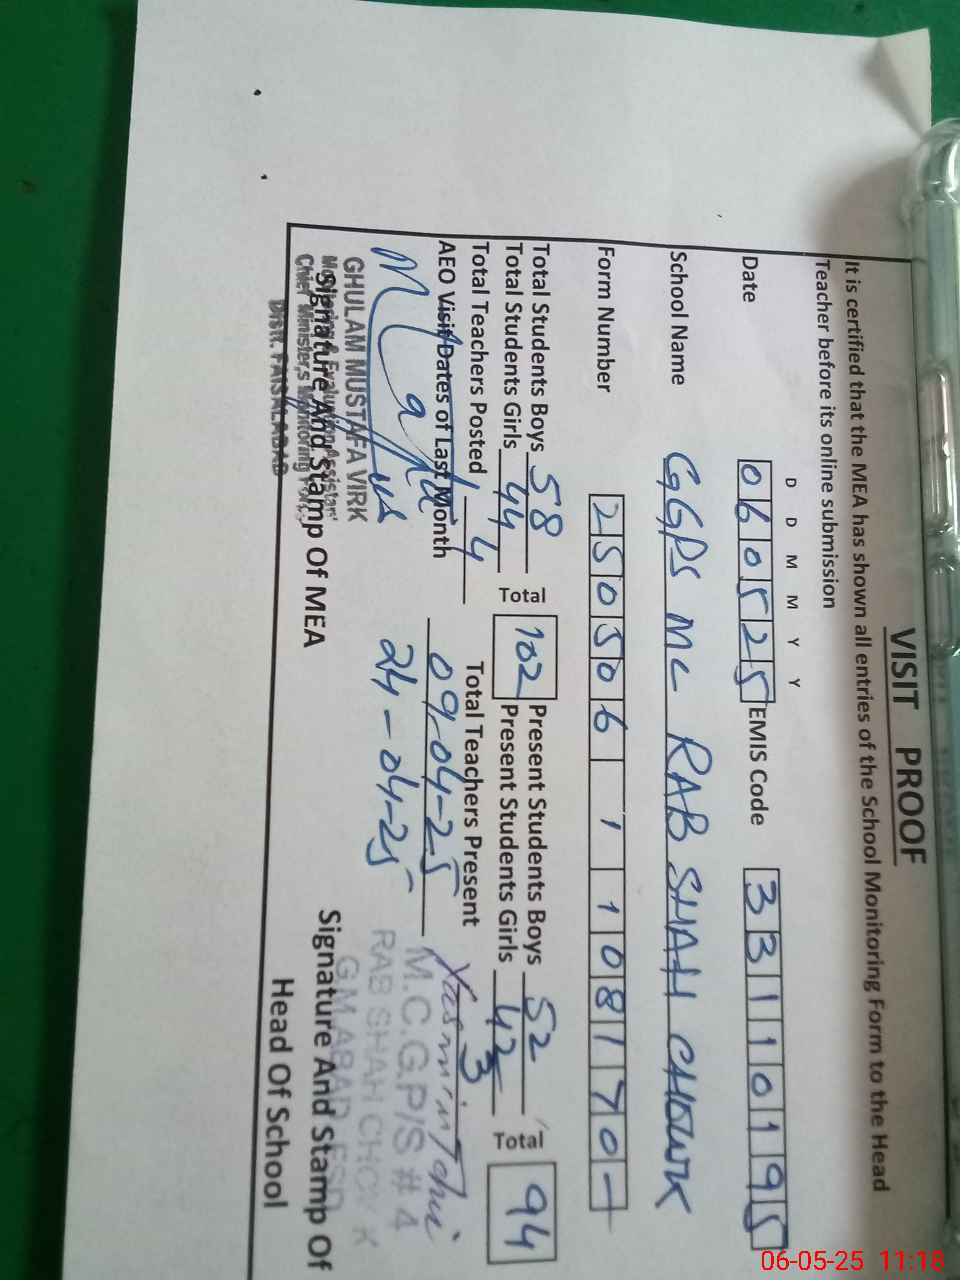 VISIT PROOF
It is certified that the MEA has shown all entries of the School Monitoring Form to the Head
Teacher before its online submission
D D M M Y Y
Date 060525 EMIS Code 33110195
School Name GGPS MC RAB SHAH CHOWK
Form Number 250506 1 1 08170-
Total Students Boys 58 Present Students Boys 52
Total Students Girls 44 Total 102 Present Students Girls 42 Total 94
Total Teachers Posted 4 Total Teachers Present 3
AEO Visit Dates of Last Month 09-04-25
24-04-25
Yasmin
M.C.G.P/S # 4
RAB SHAH CHOWK
GHULAM MUSTAFA VIRK
Monitoring & Evaluation Assistant
Chief Minister,s Monitoring Force
Distt. FAISALABAD
Signature And Stamp Of MEA
Signature And Stamp Of
Head Of School
06-05-25 11:18